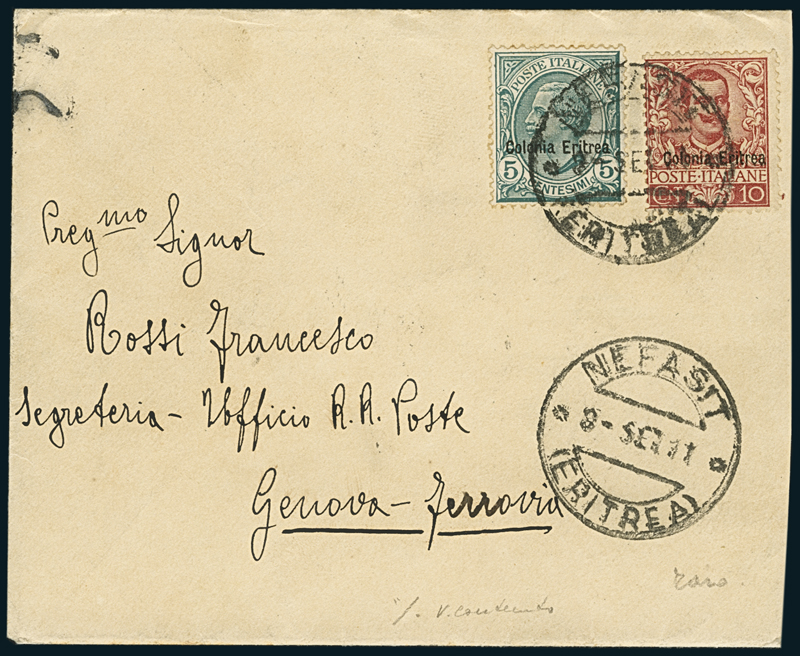 POSTE ITALIANE
Colonia Eritrea
5 CENTESIMI 5
Colonia Eritrea
POSTE·ITALIANE
10
(ERITREA)
Preg.mo Signor
Rossi Francesco
Segreteria - Ufficio R.R. Poste
Genova - Ferrovia
NEFASIT
8-SET 11
(ERITREA)
raro